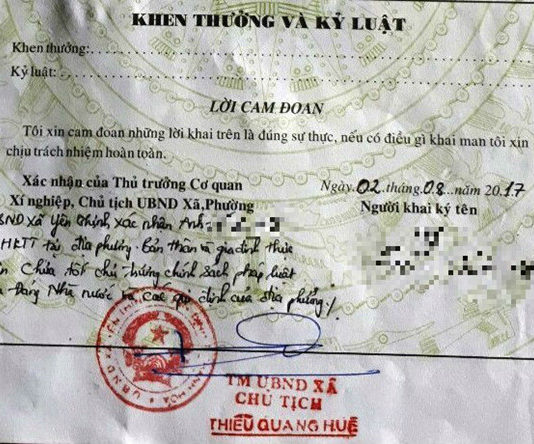 KHEN THƯỞNG VÀ KỶ LUẬT
Khen thưởng:
Kỷ luật:
LỜI CAM ĐOAN
Tôi xin cam đoan những lời khai trên là đúng sự thực, nếu có điều gì khai man tôi xin
chịu trách nhiệm hoàn toàn.
Xác nhận của Thủ trưởng Cơ quan
Xí nghiệp, Chủ tịch UBND Xã,Phường
Ngày 02 tháng 08 năm 2017
Người khai ký tên
BND Xã Yên Thịnh xác nhận Anh
HKTT tại địa phương. Bản thân và gia đình thực
Chưa tốt chủ trương chính sách pháp luật
Đảng Nhà nước và các qui định của địa phương./.
TM UBND XÃ
CHỦ TỊCH
THIỀU QUANG HUỆ